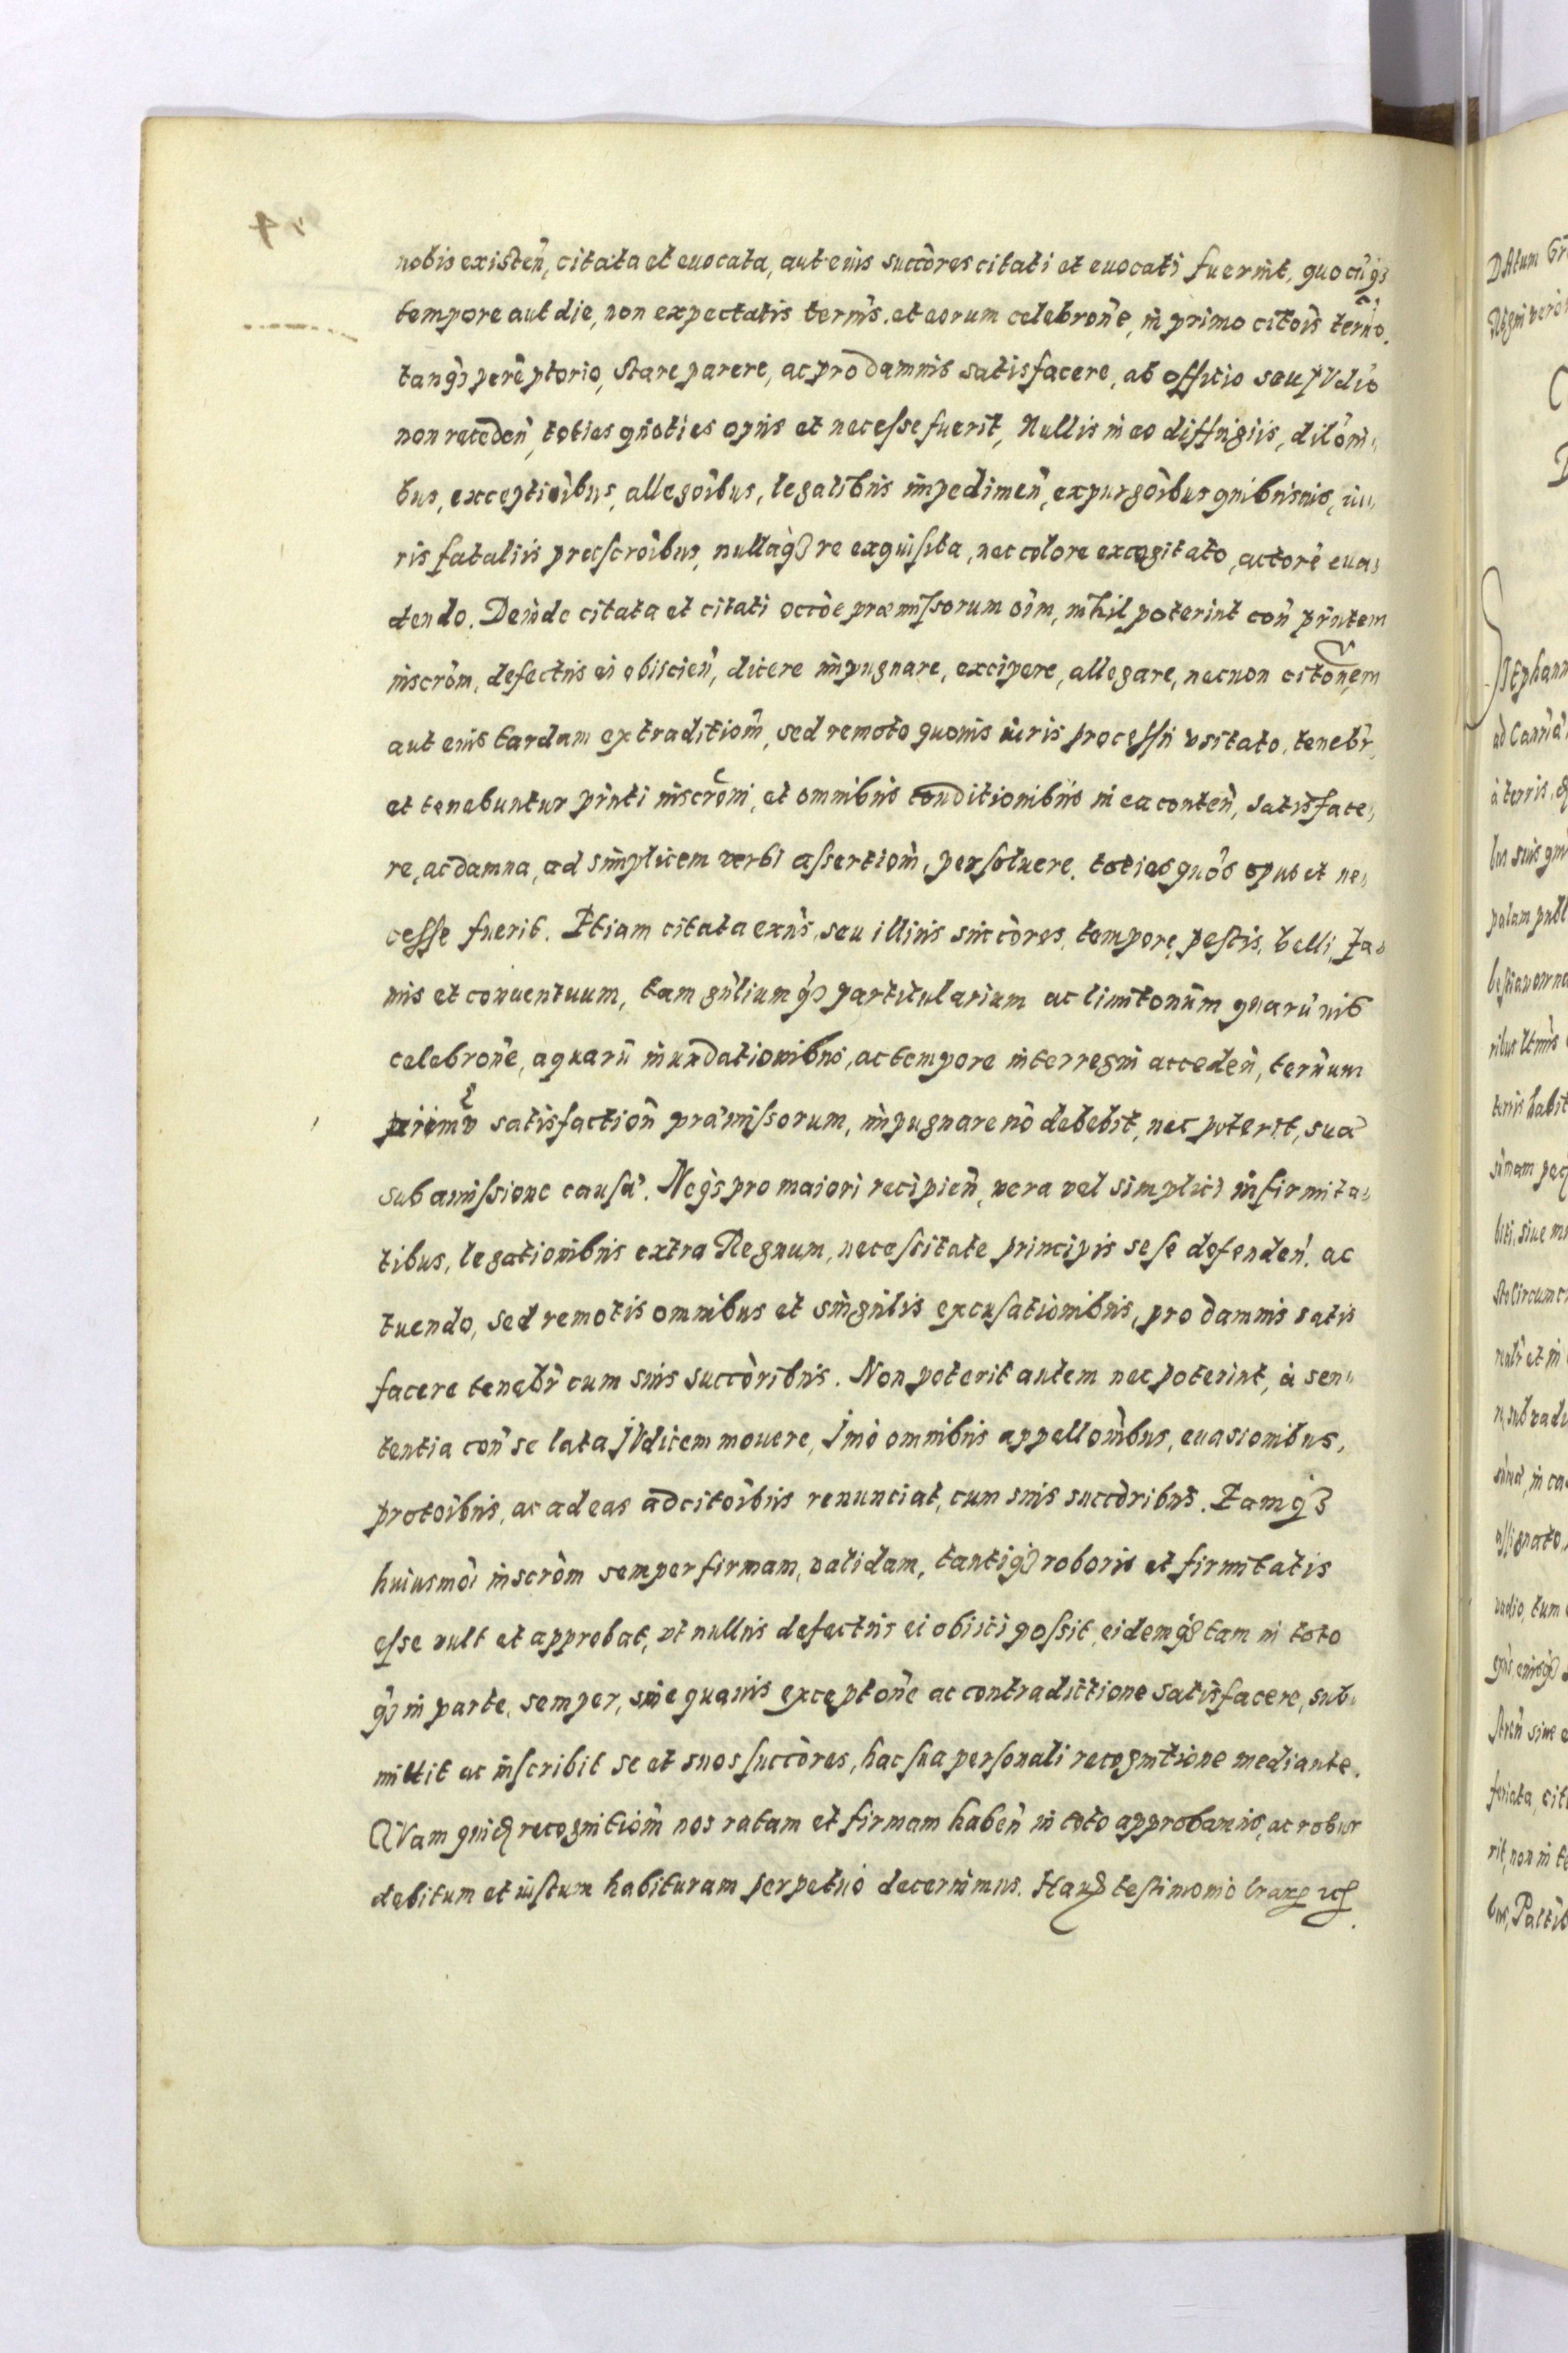 nobis existeñ, citata et euocata, aut eius succores citati et euocati fuerint, quocũq3
tempore aut die, non expectatis termis. et eorum celebrone, in primo citois termo.
tanq3 perẽptorio, stare parere, ac pro damnis satisfacere, ab officio seu jVdio
non receden, toties quoties opus et necesse fuerit, Nullis in eo diffugiis, diloni„
bus, exceptioibus, allegoibus, legalibus impedimeñ, expurgoibus quibusuis, iu„
ris fataliis prescroibus, nullaq3 re exquisita, nec colore excogitato, actorẽ eua„
dendo. Deinde citata et citati occoe præmissorum oim, nihil poterint coñ pñtem
inscrom, defectus ei obiicieñ, dicere impugnare, excipere, allegare, necnon citonem
aut eius tardam extraditiom, sed remoto quouis iuris processu vsitato, tenebr,
et tenebuntur pñti inscroni, et omnibus conditionibus in ea conteñ, satisface„
re, ac damna, ad simplicem verbi assertiom, persoluere. toties quos opus et ne„
cesse fuerit. Etiam citata exñs, seu illius succores, tempore, pestis, belli, Fa„
mis et conuentuum, tam gñlium q3 particularium ac limitonum quarũuis
celebrone, aquarũ inundationibus, ac tempore interregni accedeñ, termum
satisfactioñ præmissorum, impugnare nõ debebit, nec poterit, sua
sub amissione causa. Neq3 pro maiori recipieñ, vera vel simplici infirmita„
tibus, legationibus extra Regnum, necessitate principis sese defendeñ. ac
tuendo, sed remotis omnibus et singulis excusationibus, pro damnis satis
facere tenebr cum suis succoribus. Non poterit autem nec poterint, à sen„
tentia coñ se lata jVdicem mouere, jmò omnibus appellonibus, euasionibus,
protoibus, ac ad eas adcitoibus renunciat, cum suis succoribus. Eamq3
huiusmoi inscrom semper firmam, validam, tantiq3 roboris et firmitatis
esse vult et approbat, vt nullus defectus ei obiici possit, eidemq3 tam in toto
q3 in parte, semper, sine quauis exceptone ac contradictione satisfacere, sub„
mittit ac inscribit se et suos succores, hac sua personali recognitione mediante.
QVam quid recognitiom nos ratam et firmam habeñ in toto approbamus, ac robur
debitum et iustum habituram perpetuò decernimus. Harum testimonio lrarum